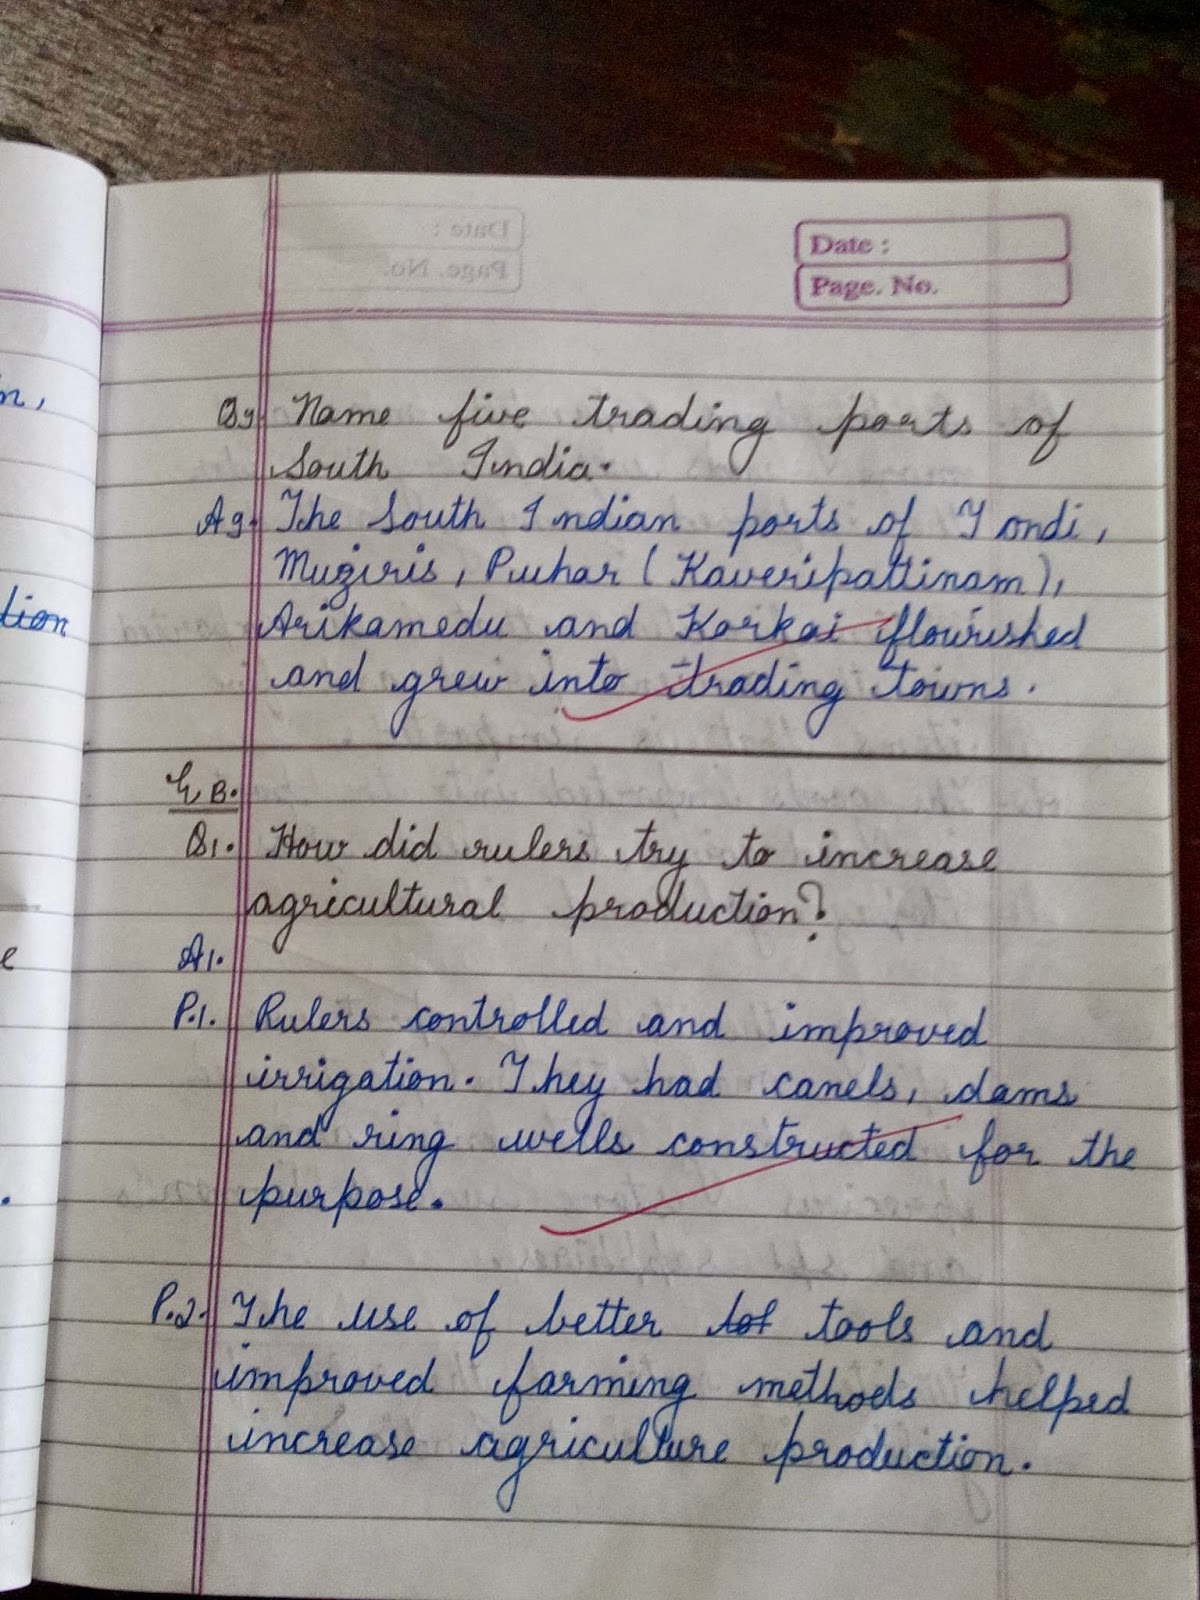 Date :
Page. No.
n,
tion
e
Q9. Name five trading ports of
South India.
A9. The South Indian ports of Tondi,
Muziris, Puuhar (Kaveripattinam),
Arikamedu and Korkai flourished
and grew into trading towns.
B.
Q1. How did rulers try to increase
agricultural production?
A1.
P.1. Rulers controlled and improved
irrigation. They had canels, dams
and ring wells constructed for the
purpose.
P.2. The use of better tools and
improved farming methods helped
increase agriculture production.